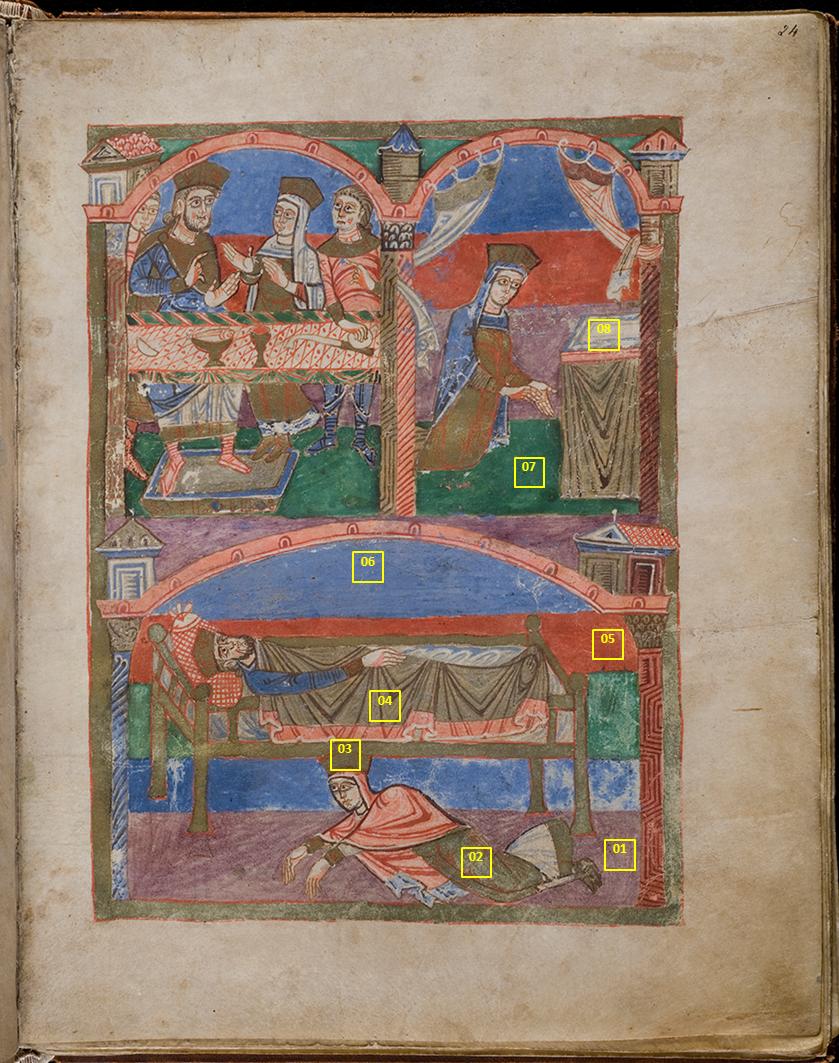 24
08
07
06
05
04
03
01
02